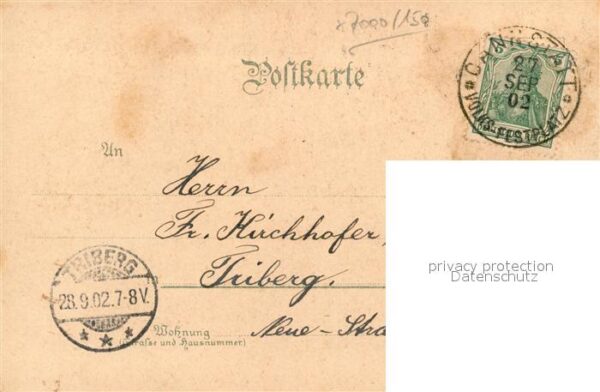 x7000/150
Postkarte
CANNSTATT
27
SEP
02
VOLKS-FESTPLATZ
An
Herrn
Fr. Kirchhofer,
Triberg.
TRIBERG
28.9.02.7-8V.
Wohnung
(Strasse und Hausnummer)
Neue-Stra
privacy protection
Datenschutz